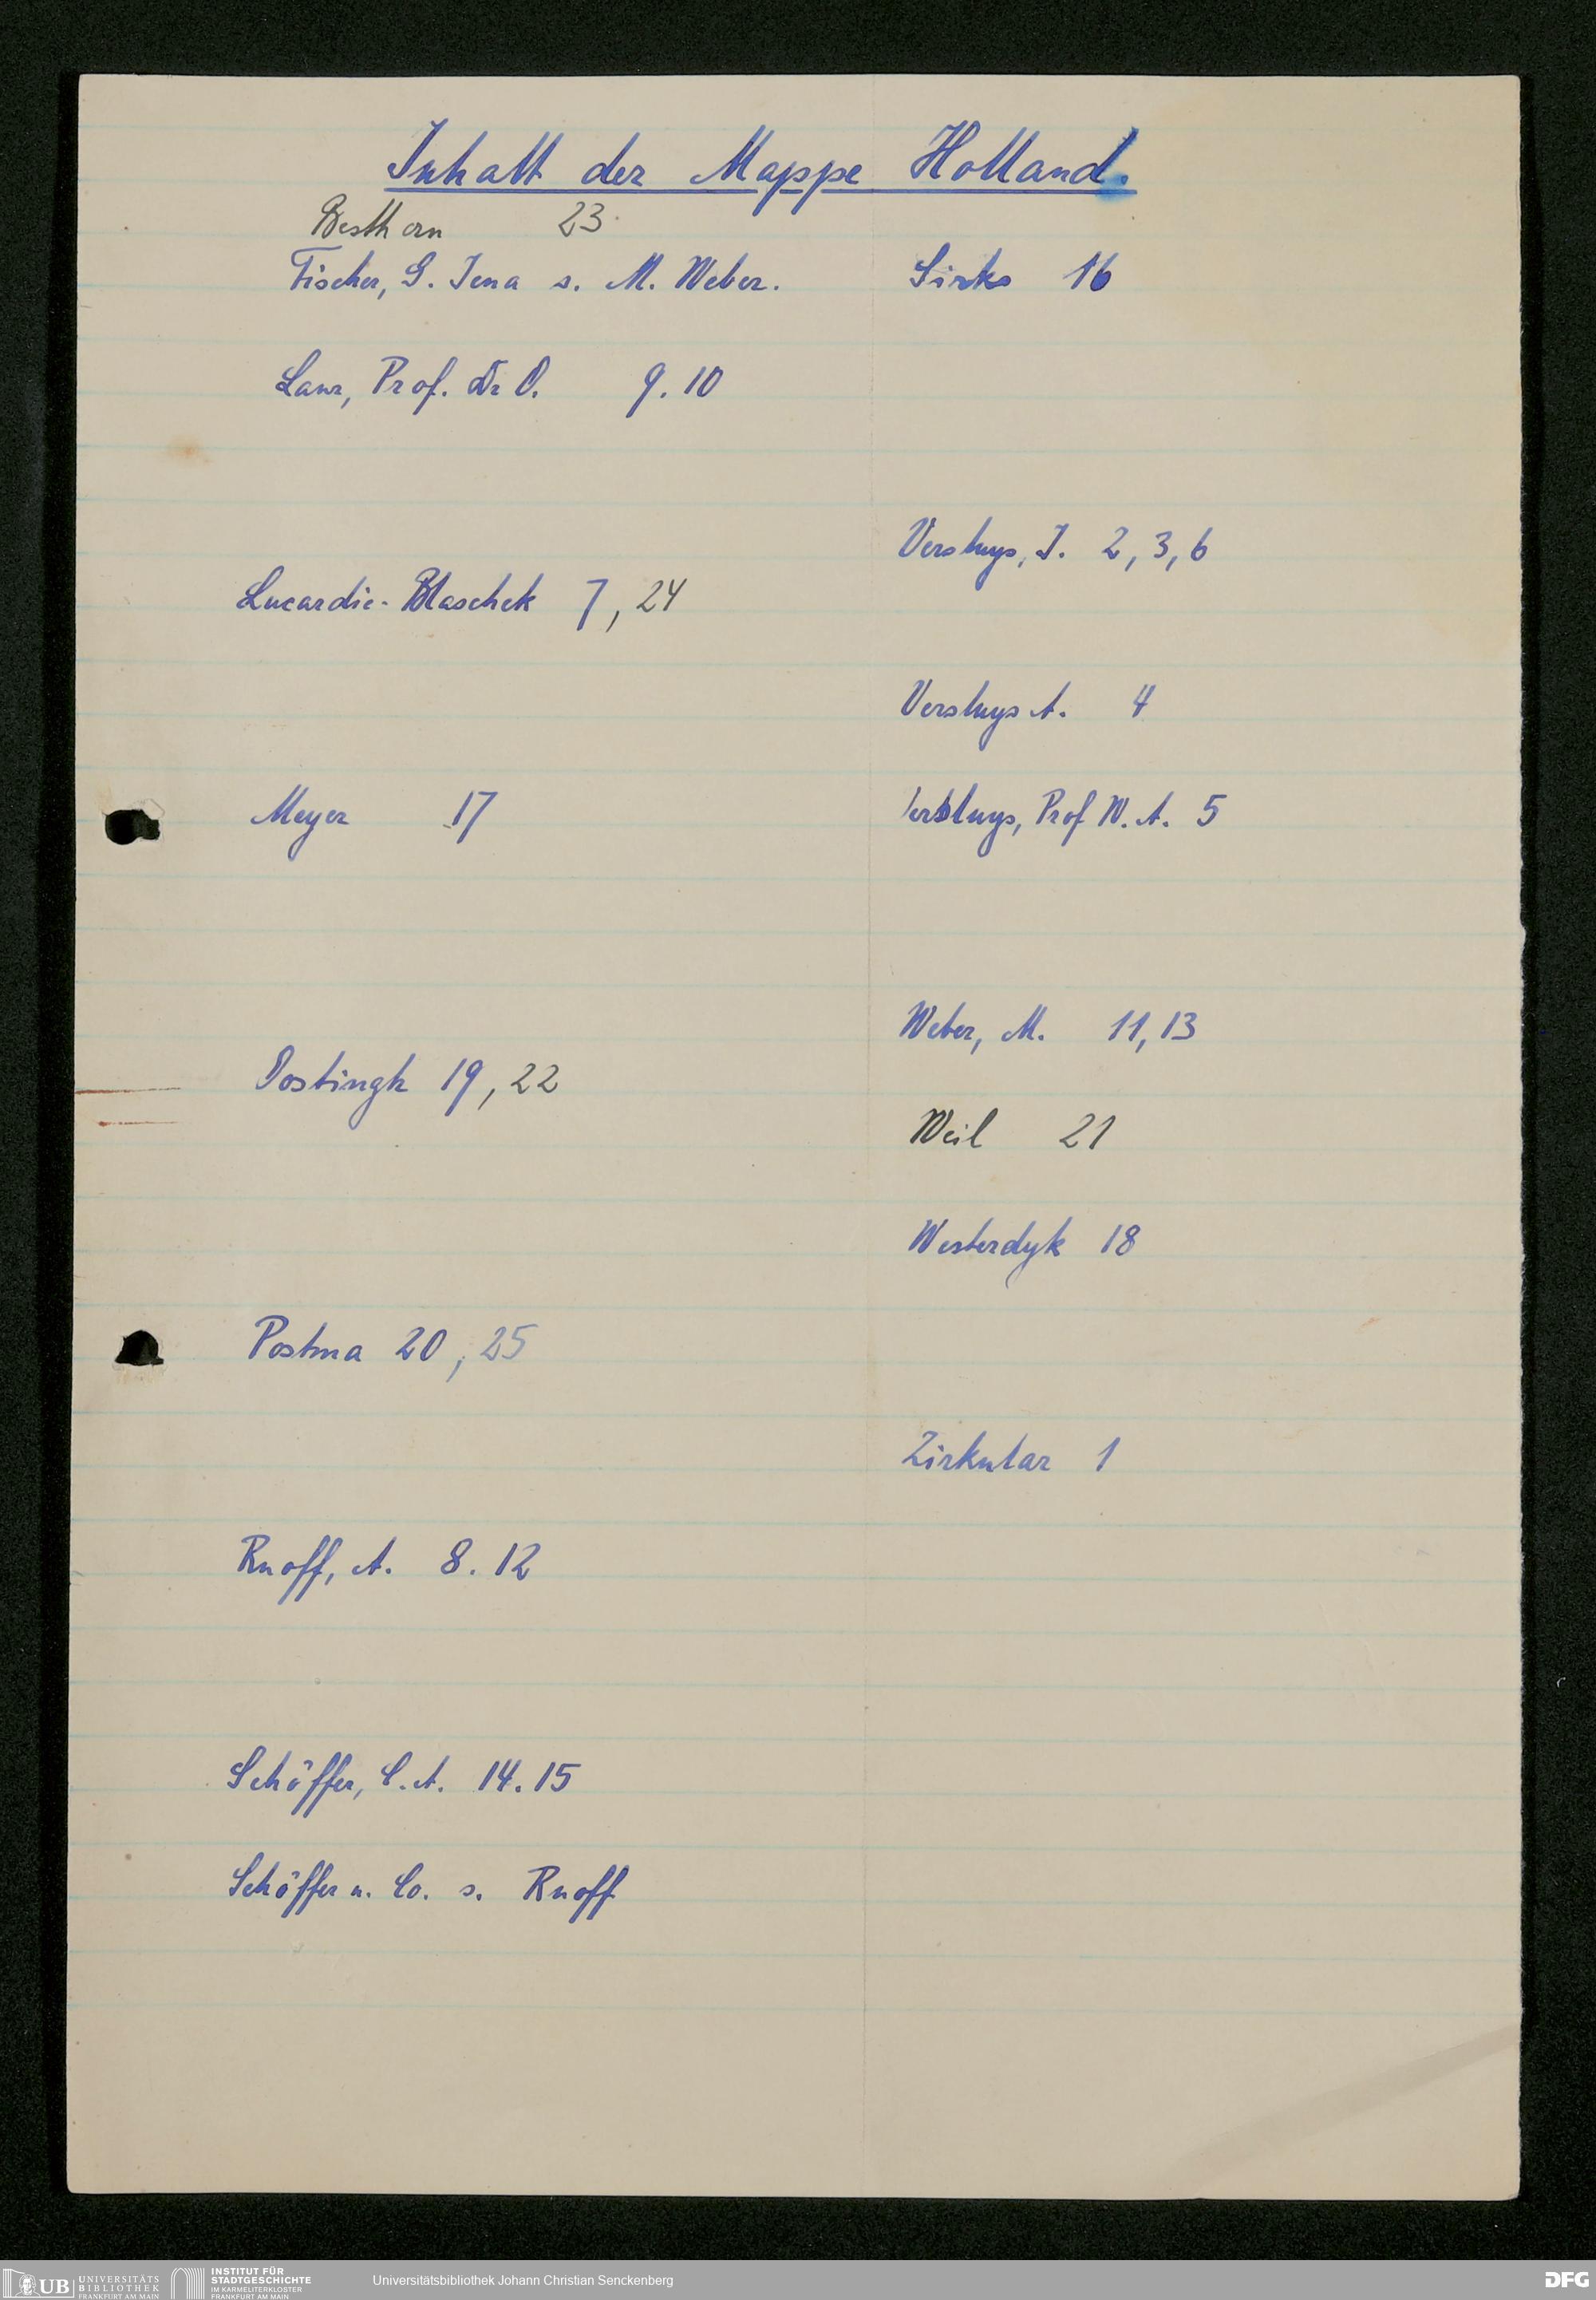 Inhalt der Mappe Holland.
Besthorn 23
Fischer, G. Jena s. M. Weber.
Lanz, Prof. Dr O. 9. 10
Lucardie-Blaschek 7, 24
Meyer 17
Oostingh 19, 22
Postma 20, 25
Knoff, A. 8. 12
Schöffer, C. A. 14. 15
Schöffer u. Co. s. Knoff
Sirks 16
Versluys, J. 2, 3, 6
Versluys A. 4
Versluys, Prof W. A. 5
Weber, M. 11, 13
Weil 21
Westerdyk 18
Zirkular 1
UB UNIVERSITÄTS
BIBLIOTHEK
FRANKFURT AM MAIN
INSTITUT FÜR
STADTGESCHICHTE
IM KARMELITERKLOSTER
FRANKFURT AM MAIN
Universitätsbibliothek Johann Christian Senckenberg
DFG